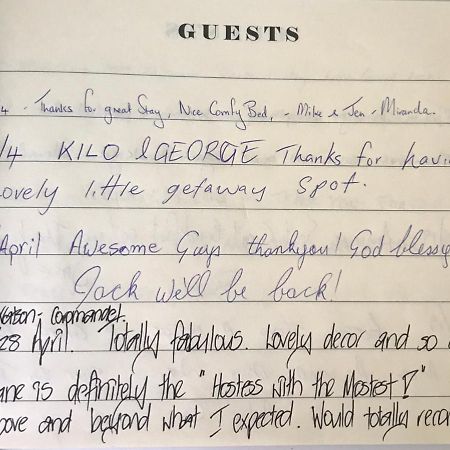 GUESTS
4 - Thanks for great Stay, Nice Comfy Bed, - Mike & Jen - Miranda.
/4 KILO & GEORGE Thanks for havi
ovely little getaway spot.
April Awesome Guys thankyou! God blessi
Jack we'll be back!
Coromandel.
28 April. Totally fabulous. Lovely decor and so
ane is definitely the "Hostess with the Mostest!"
ove and beyond what I expected. Would totally recom